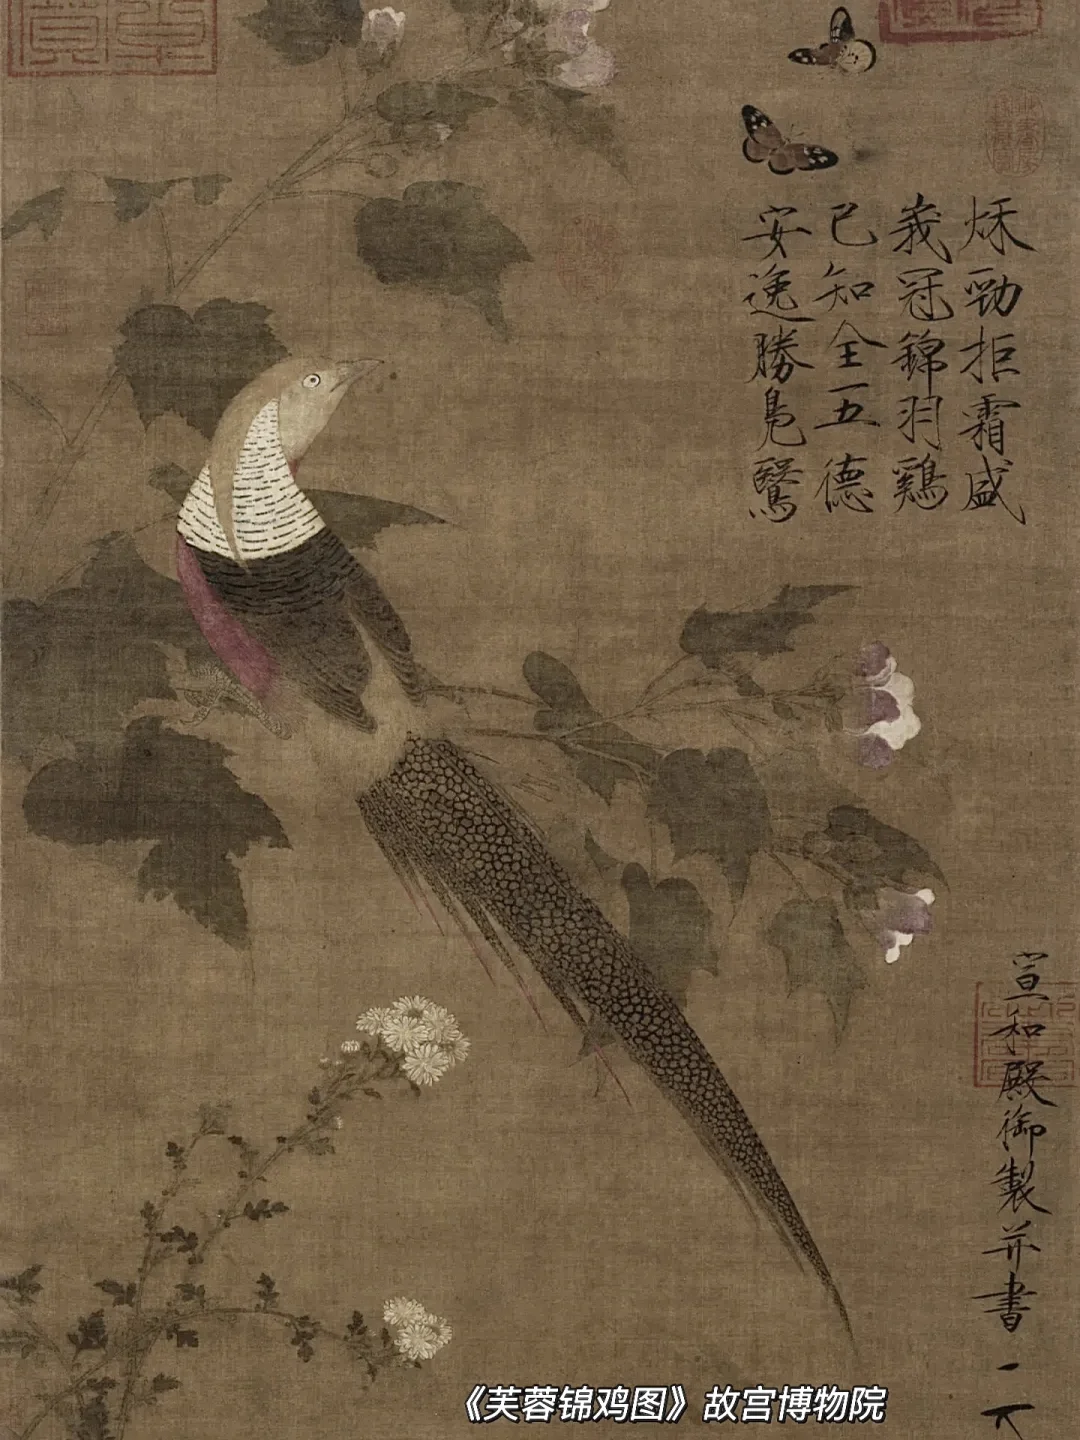 秌勁拒霜盛
峩冠錦羽鷄
已知全五德
安逸勝鳬鷖
宣和殿御製并書
《芙蓉锦鸡图》故宫博物院